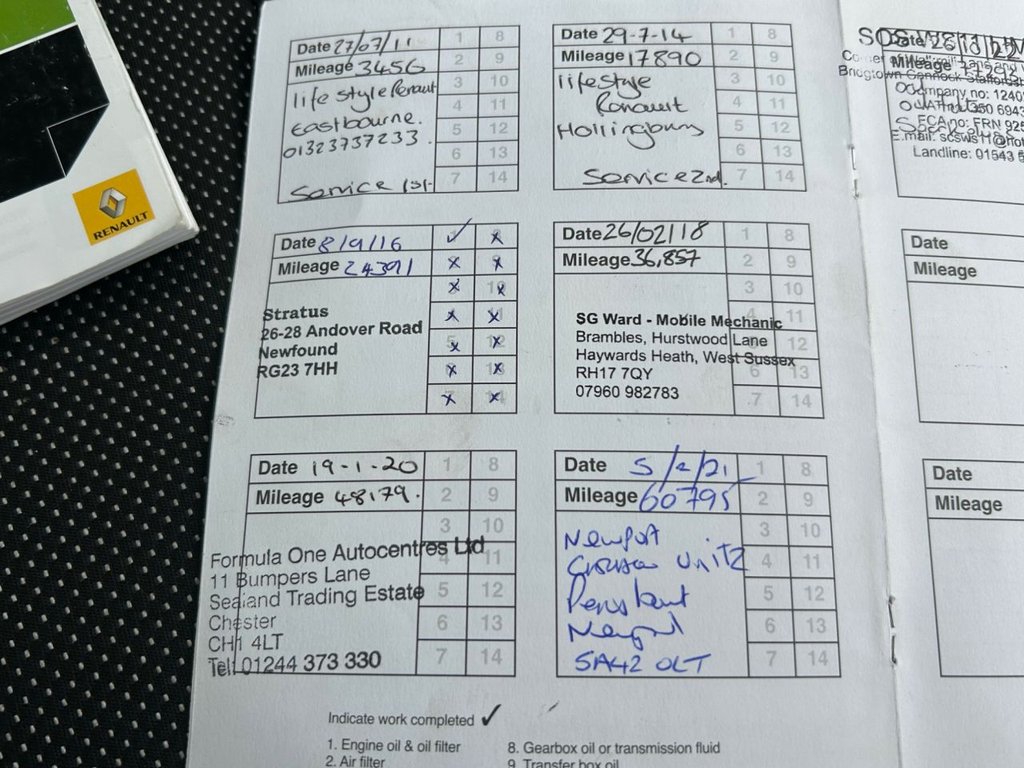 RENAULT
Date 27/07/11
Mileage 3456
life style Renault
Eastbourne.
01323737233.
Service 1st.
1 8
2 9
3 10
4 11
5 12
6 13
7 14
Date 29-7-14
Mileage 17890
lifestyle
Renault
Hollingbury
Service 2nd.
1 8
2 9
3 10
4 11
5 12
6 13
7 14
Date 8/9/16
Mileage 24391
Stratus
26-28 Andover Road
Newfound
RG23 7HH
Date 26/02/18
Mileage 36,857
SG Ward - Mobile Mechanic
Brambles, Hurstwood Lane
Haywards Heath, West Sussex
RH17 7QY
07960 982783
1 8
2 9
3 10
4 11
5 12
6 13
7 14
Date 19-1-20
Mileage 48179.
Formula One Autocentres Ltd
11 Bumpers Lane
Sealand Trading Estate
Chester
CH1 4LT
Tel: 01244 373 330
1 8
2 9
3 10
4 11
5 12
6 13
7 14
Date 5/2/21
Mileage 60795
Newport
Unitz
SA42 0LT
1 8
2 9
3 10
4 11
5 12
6 13
7 14
Date
Mileage
Company no: 1240
FCA no: FRN 925
Landline: 01543
Date
Mileage
Date
Mileage
Indicate work completed ✓
1. Engine oil & oil filter
2. Air filter
8. Gearbox oil or transmission fluid
9 Transfer box oil